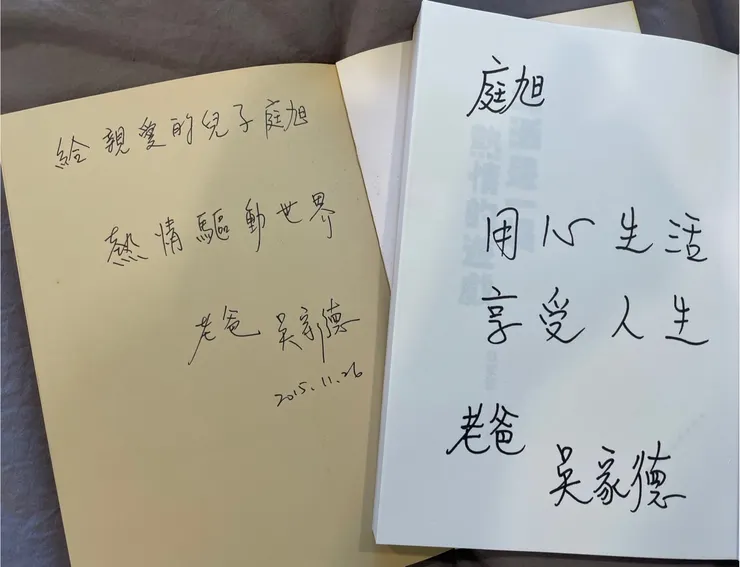 給親愛的兒子庭旭
熱情驅動世界
老爸 吳家德
2015.11.26
庭旭
用心生活
享受人生
老爸
吳家德